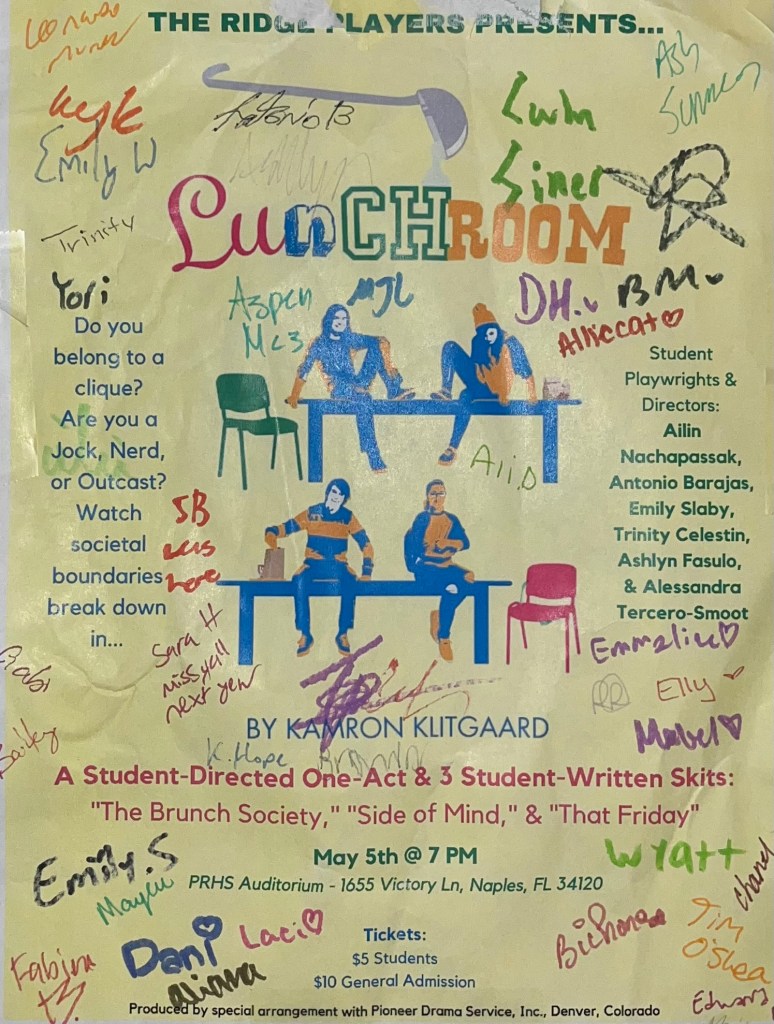 THE RIDGE PLAYERS PRESENTS...
Kyle
Emily W
Antonio B
Ash
Trinity
LunCHROOM
Yori
Aspen
MC3
MJL
DH.
BM.
Alliecat
Do you
belong to a
clique?
Are you a
Jock, Nerd,
or Outcast?
Watch
societal
boundaries
break down
in...
Ali.D
SB
was
here
Student
Playwrights &
Directors:
Ailin
Nachapassak,
Antonio Barajas,
Emily Slaby,
Trinity Celestin,
Ashlyn Fasulo,
& Alessandra
Tercero-Smoot
Sara H
miss y'all
next year
Gabi
Bailey
Emmeline
RR
Elly
Mabel
BY KAMRON KLITGAARD
K. Hope
A Student-Directed One-Act & 3 Student-Written Skits:
"The Brunch Society," "Side of Mind," & "That Friday"
May 5th @ 7 PM
PRHS Auditorium - 1655 Victory Ln, Naples, FL 34120
Emily.S
Wyatt
Dani
Laci
Aliana
Tim
O'Shea
Edward
Tickets:
$5 Students
$10 General Admission
Produced by special arrangement with Pioneer Drama Service, Inc., Denver, Colorado